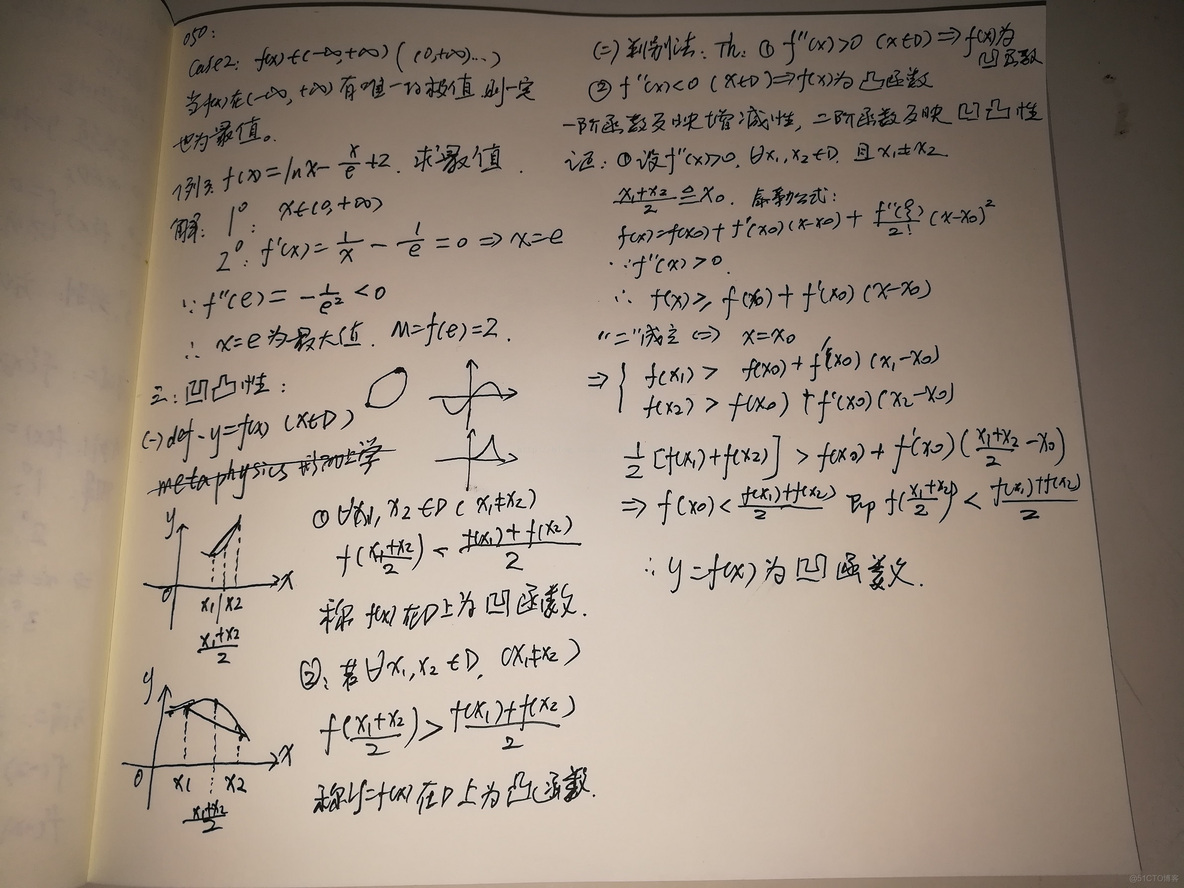 050:
case2: f(x) ∈(-∞,+∞) ( (0,+∞)...)
当f(x)在(-∞,+∞)有唯一的极值,则一定
也为最值。
例3: f(x)=lnx-x/e+2. 求最值.
解: 1°: x∈(0,+∞)
2°: f'(x)=1/x - 1/e =0 ⇒ x=e
∵ f''(e)= -1/e² <0
∴ x=e为最大值. M=f(e)=2.
三:凹凸性:
(一) def - y=f(x) (x∈D)
metaphysics 形而上学
y
0 x1 x2 x
(x1+x2)/2
① ∀x1, x2 ∈D ( x1≠x2)
f((x1+x2)/2) < (f(x1)+f(x2))/2
称 f(x)在D上为凹函数.
y
0 x1 x2 x
(x1+x2)/2
②: 若∀x1,x2 ∈D, (x1≠x2)
f((x1+x2)/2) > (f(x1)+f(x2))/2
称y=f(x)在D上为凸函数.
(二)判别法: Th: ① f''(x)>0 (x∈D) ⇒ f(x)为
凹函数
② f''(x)<0 (x∈D)⇒f(x)为凸函数
一阶函数反映增减性, 二阶函数反映凹凸性
证: ①设f''(x)>0, ∀x1,x2∈D, 且x1≠x2.
(x1+x2)/2 ≜ x0. 泰勒公式:
f(x)=f(x0)+f'(x0)(x-x0)+ f''(ξ)/2! (x-x0)²
∵f''(x)>0.
∴ f(x)≥ f(x0)+f'(x0)(x-x0)
"="成立 ⇔ x=x0
⇒ { f(x1) > f(x0)+f'(x0)(x1-x0)
f(x2) > f(x0)+f'(x0)(x2-x0)
1/2 [f(x1)+f(x2)] > f(x0)+f'(x0)((x1+x2)/2 -x0)
⇒ f(x0) < (f(x1)+f(x2))/2 即 f((x1+x2)/2) < (f(x1)+f(x2))/2
∴ y=f(x)为凹函数.
@51CTO博客